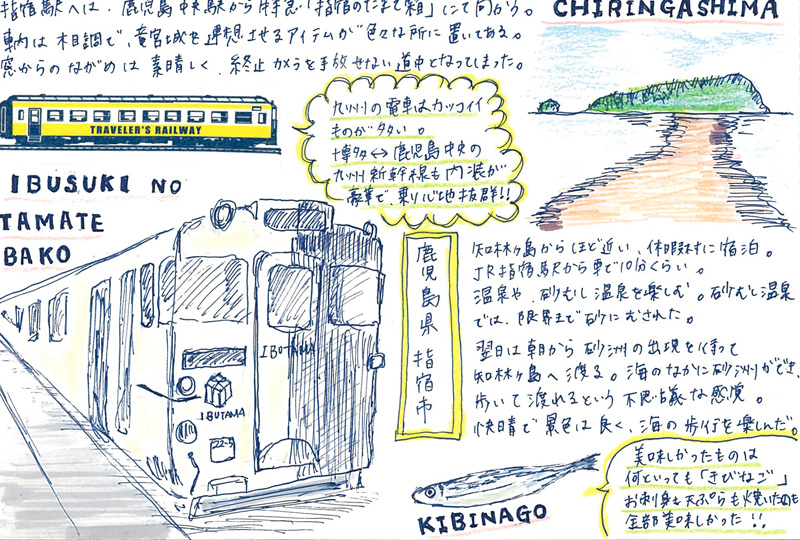 指宿駅へは、鹿児島中央駅から特急「指宿のたまて箱」にて向かう。
車内は木目調で、竜宮城を連想させるアイテムが色々な所に置いてある。
窓からのながめは素晴しく、終止カメラを手放せない道中となってしまった。
TRAVELER'S RAILWAY
IBUSUKI NO
TAMATE
BAKO
九州の電車はカッコイイ
ものが多い。
博多↔鹿児島中央の
九州新幹線も内装が
豪華で、乗り心地抜群!!
CHIRINGASHIMA
鹿児島県 指宿市
知林ヶ島からほど近い、休暇村に宿泊。
JR指宿駅から車で10分くらい。
温泉や、砂むし温泉を楽しむ。砂むし温泉
では、限界まで砂にむされた。
翌日は朝から砂洲の出現を待って
知林ヶ島へ渡る。海のなかに砂洲ができ、
歩いて渡れるという不思議な感覚。
快晴で景色は良く、海の歩行を楽しんだ。
IBUTAMA
IBUTAMA
KIBINAGO
美味しかったものは
何といっても「きびなご」
お刺身も天ぷらも焼いたのも
全部美味しかった!!